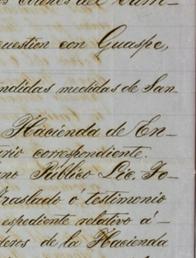 cuestion con Guaspe,
ndidas medidas de San-
Hacienda de En-
rio correspondiente.
no Público Lic. Jo-
traslado ó testimonio
espediente relativo á
deros de la Hacienda